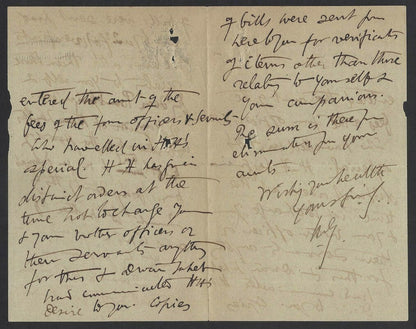 entered the amt of the
fees of the four officers & servants
who travelled in HH's
special. HH has given
distinct orders at the
time not to charge you
& your brother officers or
their servants anything
for this & Dewan Saheb
had communicated HH's
desire to you. Copies
of bills were sent from
here to you for verification
of items other than those
relating to yourself &
your companions.
The sum is therefore
eliminated from your
accts.
Wishing you health
Yours